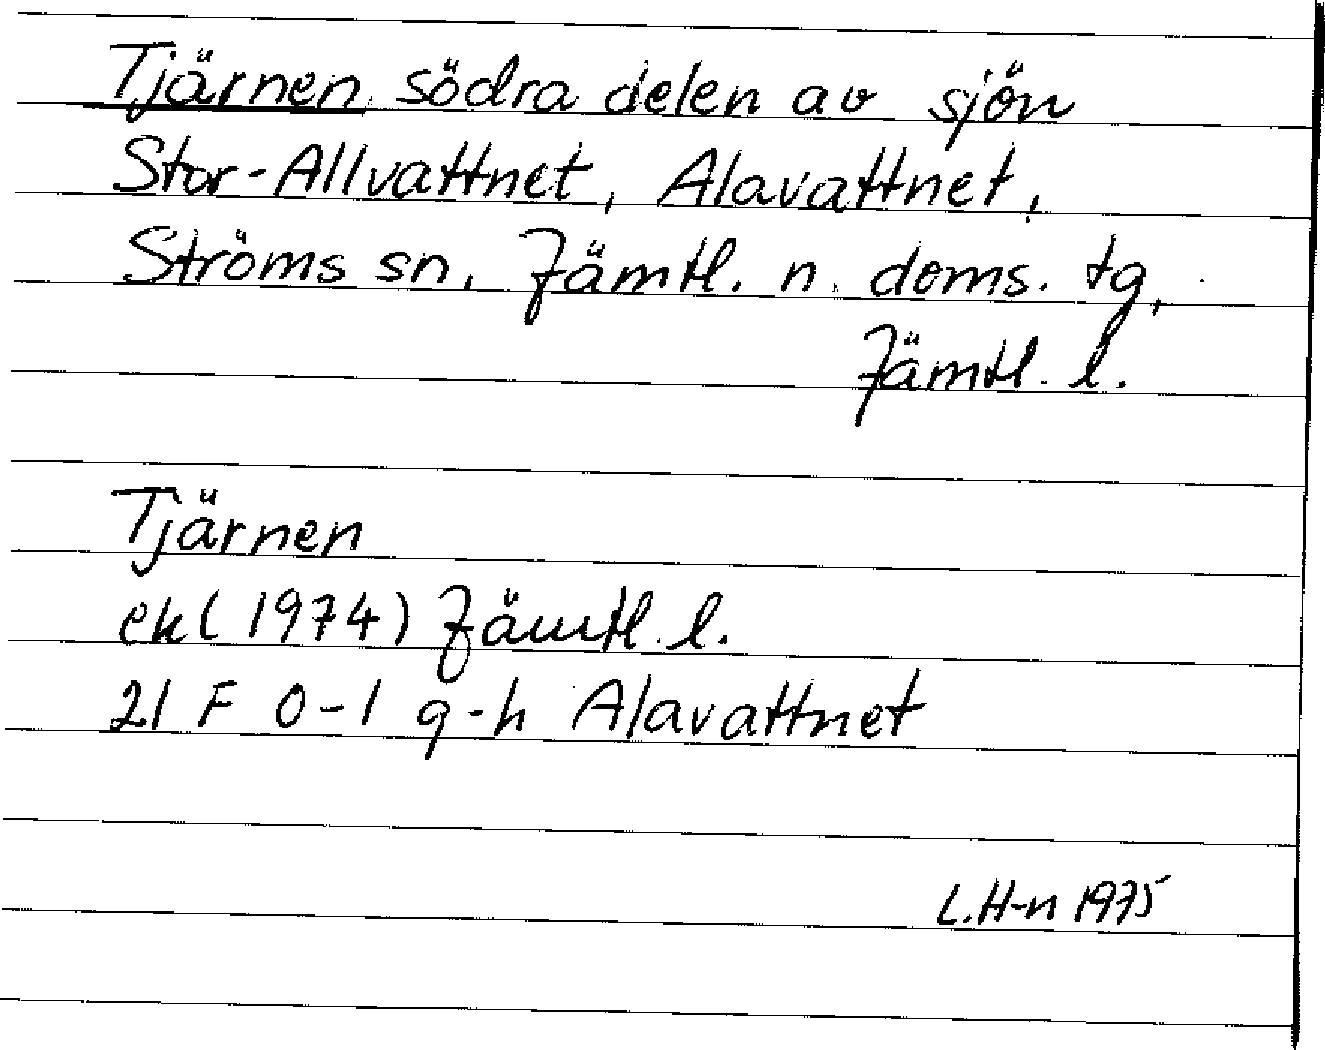 Tjärnen, södra delen av sjön
Stor-Allvattnet, Alavattnet,
Ströms sn, Jämtl. n. doms. tg,
Jämtl. l.
Tjärnen
ek (1974) Jämtl. l.
21 F 0-1 g-h Alavattnet
L.H-n 1975